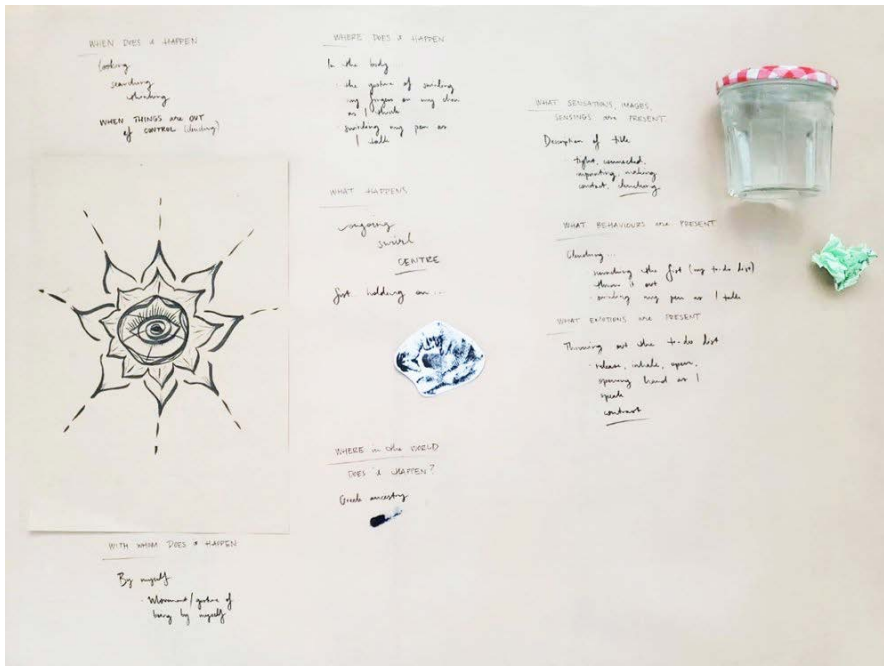 WHEN DOES it HAPPEN
looking
searching
thinking
WHEN THINGS are OUT
of CONTROL (clenching)
WITH WHOM DOES it HAPPEN
By myself
- Movement/gesture of
being by myself
WHERE DOES it HAPPEN
In the body
- the gesture of
my fingers on my
as I think
- my pen as
I talk
WHAT HAPPENS
ongoing
swirl
CENTRE
fist holding on...
WHERE in the WORLD
DOES it HAPPEN?
Greek ancestry
WHAT SENSATIONS, IMAGES,
SENSINGS are PRESENT
Description of title
- tight, connected,
making
contact, clenching
WHAT BEHAVIOURS are PRESENT
Clenching...
- the fist (my to-do list)
- throw it out
- my pen as I talk
WHAT EMOTIONS are PRESENT
Throwing out the to-do list
- release, inhale, open,
opening hand as I
speak
contrast